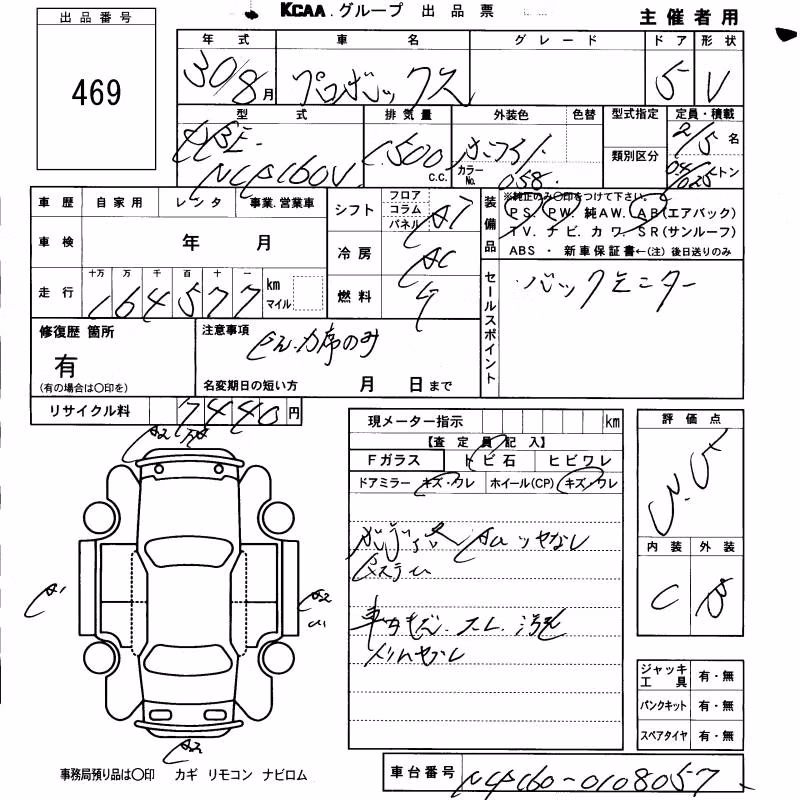 KCAA.グループ 出品票
主催者用
出品番号
469
年式 車名 グレード ドア 形状
30/8月 プロボックス 5 V
型式 排気量 外装色 色替 型式指定 定員・積載
類別区分
DBE-
NCP160V 1,500 c.c. カラーNo. 058 2/5名
トン
車歴 自家用 レンタ 事業.営業車
車検 年 月
走行 十万 万 千 百 十 一
164577 km マイル
シフト フロア コラム パネル AT
冷房 AC
燃料 ガ
装備品
※純正のみ○印をつけて下さい。
PS. PW. 純AW. AB(エアバック)
TV. ナビ. カワ. SR(サンルーフ)
ABS ・ 新車保証書←(注)後日送りのみ
セールスポイント
バックモニター
修復歴 箇所
有
(有の場合は○印を)
注意事項
名変期日の短い方 月 日まで
リサイクル料 7440円
現メーター指示 km
【査定員記入】
Fガラス トビ石 ヒビワレ
ドアミラー キズ・ワレ ホイール(CP) キズ・ワレ
評価点
内装 外装
C
A1
A2
ジャッキ工具 有・無
パンクキット 有・無
スペアタイヤ 有・無
事務局預り品は○印 カギ リモコン ナビロム
車台番号 NCP160-0108057